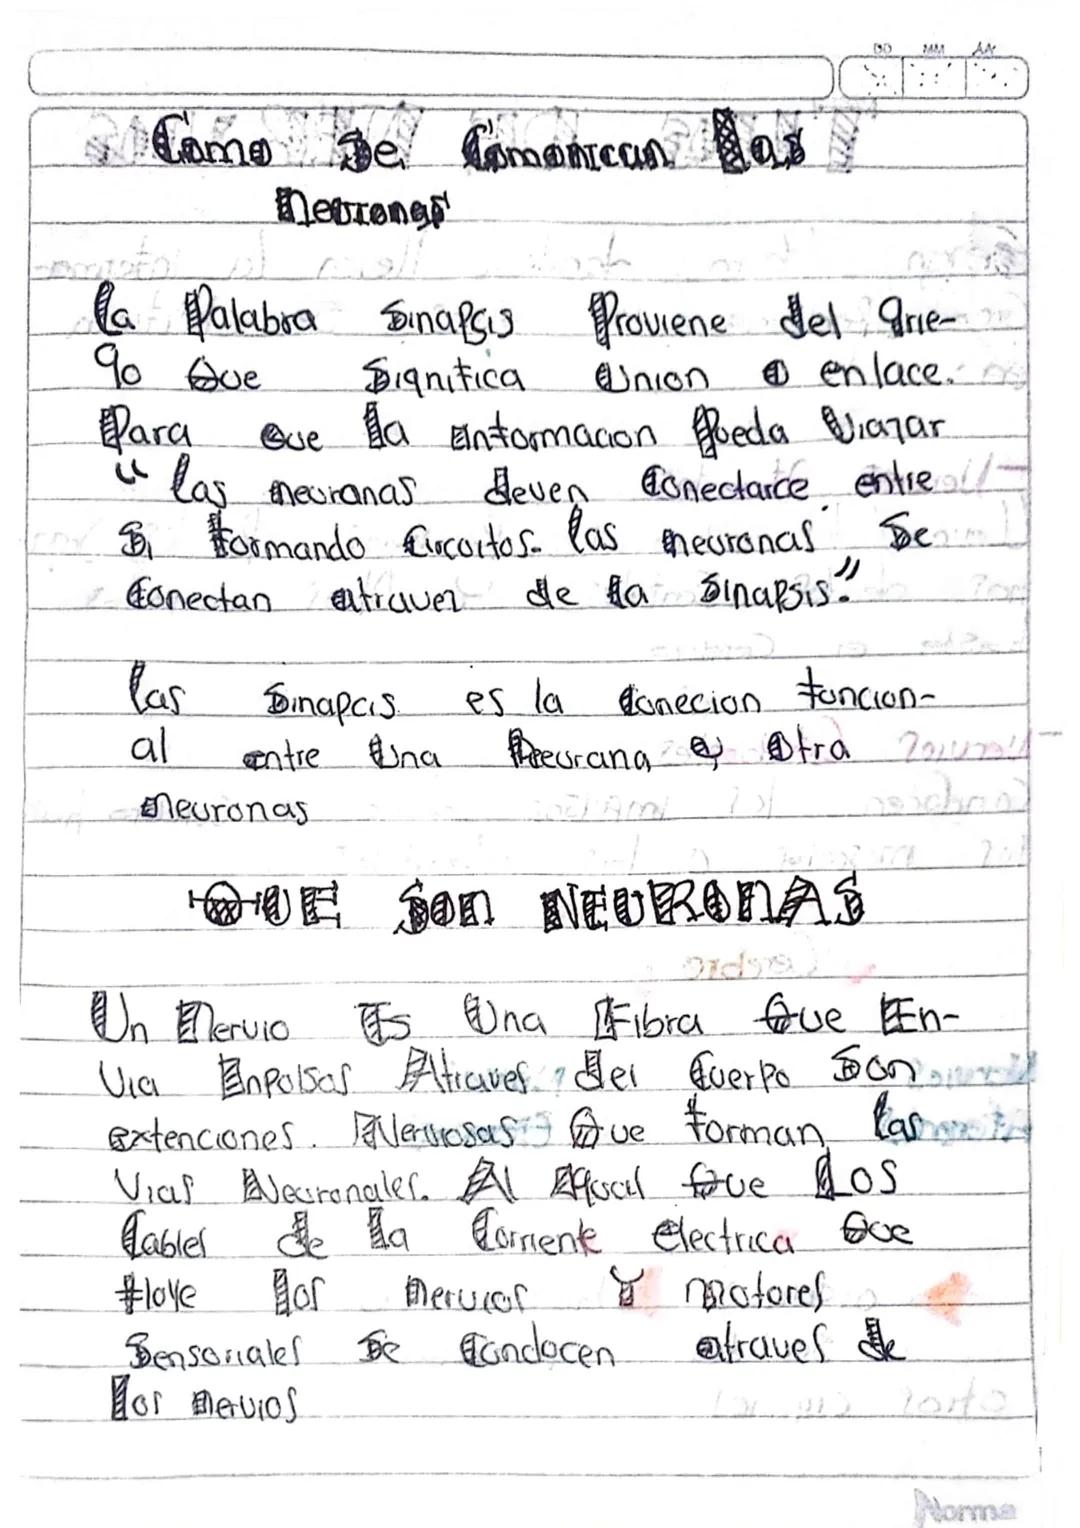 DD MM AA
Como Se Comonican Las
Neuronas
La Palabra Sinapsis Proviene del grie-
go Que Significa Union o enlace.
Para Que la informacion Pueda Viazar
“ las neuranas deven Conectarce entre
Si formando Circoitos. las neuronas Se
Conectan atravez de la Sinapsis.”
las Sinapcis es la Conecion funcion-
al entre Una Neurana y Otra
neuronas
QUE SON NEURONAS
Un Nervio Es Una Fibra Que En-
Via Enpolsos Atraves del Cuerpo Son
extenciones. Nerviosas Que forman las
Vias Neuronales. Al Igual Que Los
Cables de la Corriente electrica Que
floye los nervios Y motores
Sensoriales Se Condocen atraves de
los nervios
Norma